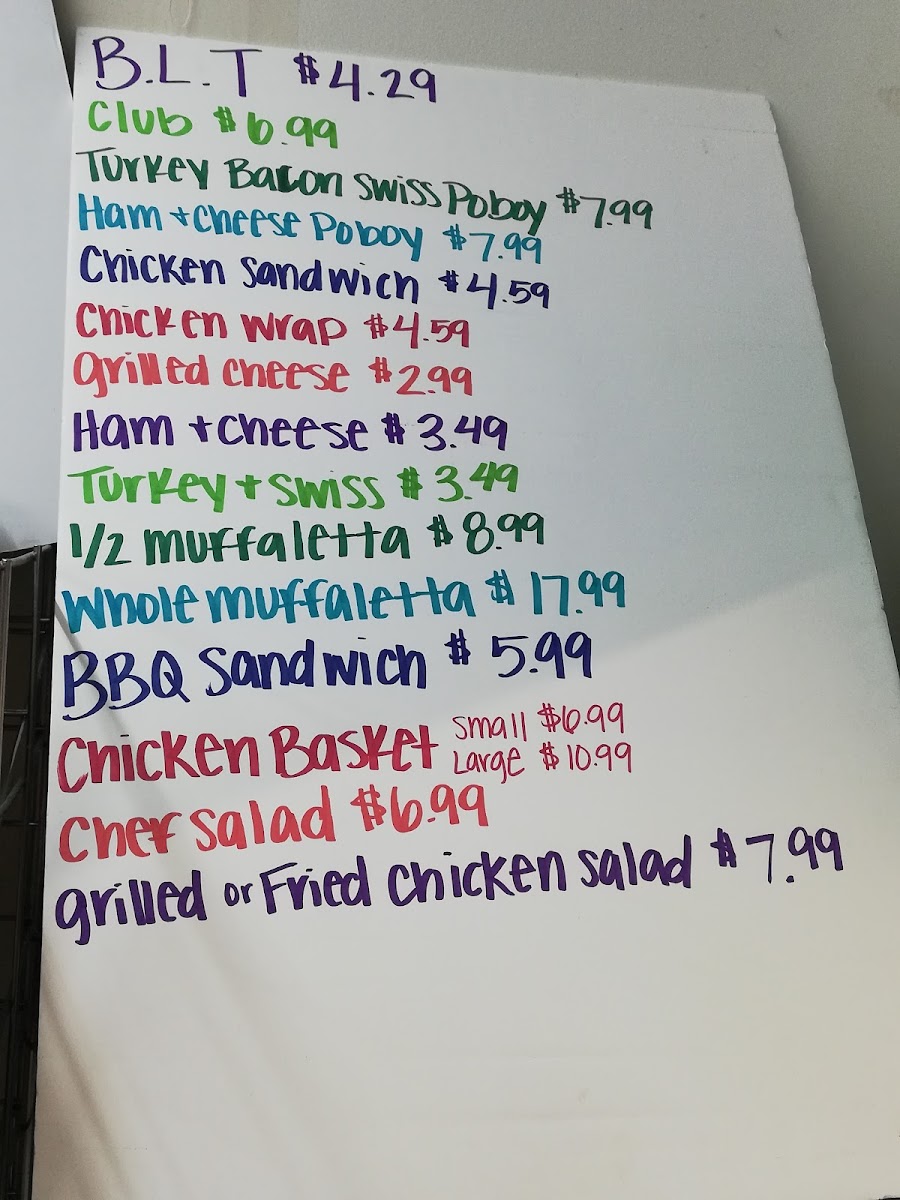 B.L.T $4.29
Club $6.99
Turkey Bacon Swiss Poboy $7.99
Ham + Cheese Poboy $7.99
Chicken Sandwich $4.59
Chicken Wrap $4.59
grilled cheese $2.99
Ham + Cheese $3.49
Turkey + Swiss $3.49
1/2 muffaletta $8.99
Whole muffaletta $17.99
BBQ Sandwich $5.99
Chicken Basket Small $6.99
Large $10.99
Chef Salad $6.99
grilled or Fried Chicken Salad $7.99